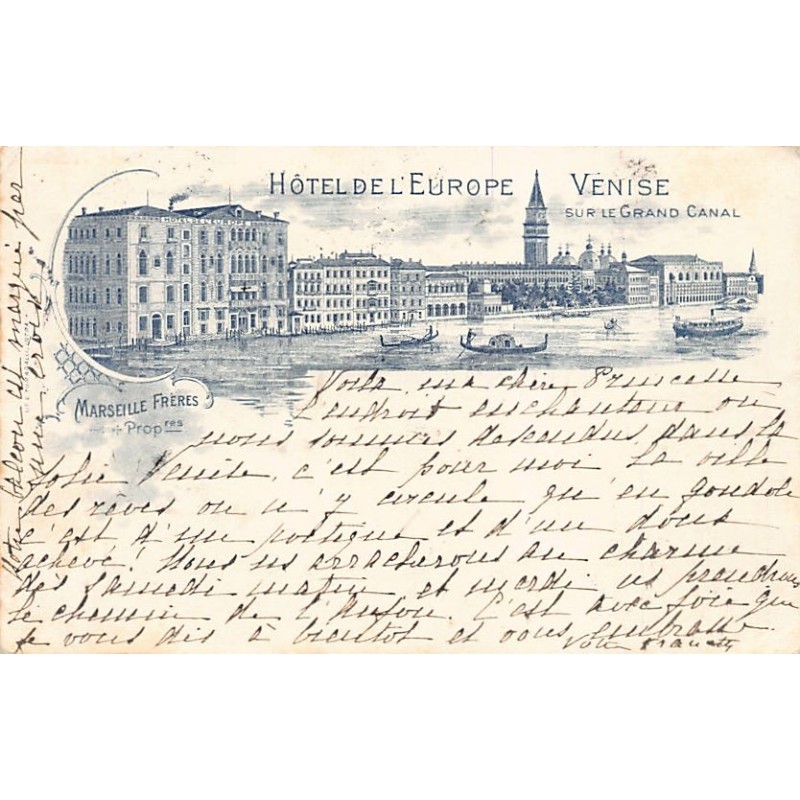 HÔTEL DE L'EUROPE VENISE
SUR LE GRAND CANAL
HOTEL DE L'EUROPE
MARSEILLE FRÈRES
Propres
Voilà, ma chère Princesse
l'endroit enchanteur où
nous sommes descendus dans la
jolie Venise, c'est pour moi la ville
des rêves où l'on n'y circule qu'en gondole
c'est d'une poétique et d'un doux
achevé! Nous ns arracherons au charme
dès samedi matin et mardi ns prendrons
le chemin de l'Anjou. C'est avec joie que
je vous dis à bientôt et vous embrasse.
Votre
Notre balcon est marqué par
une croix